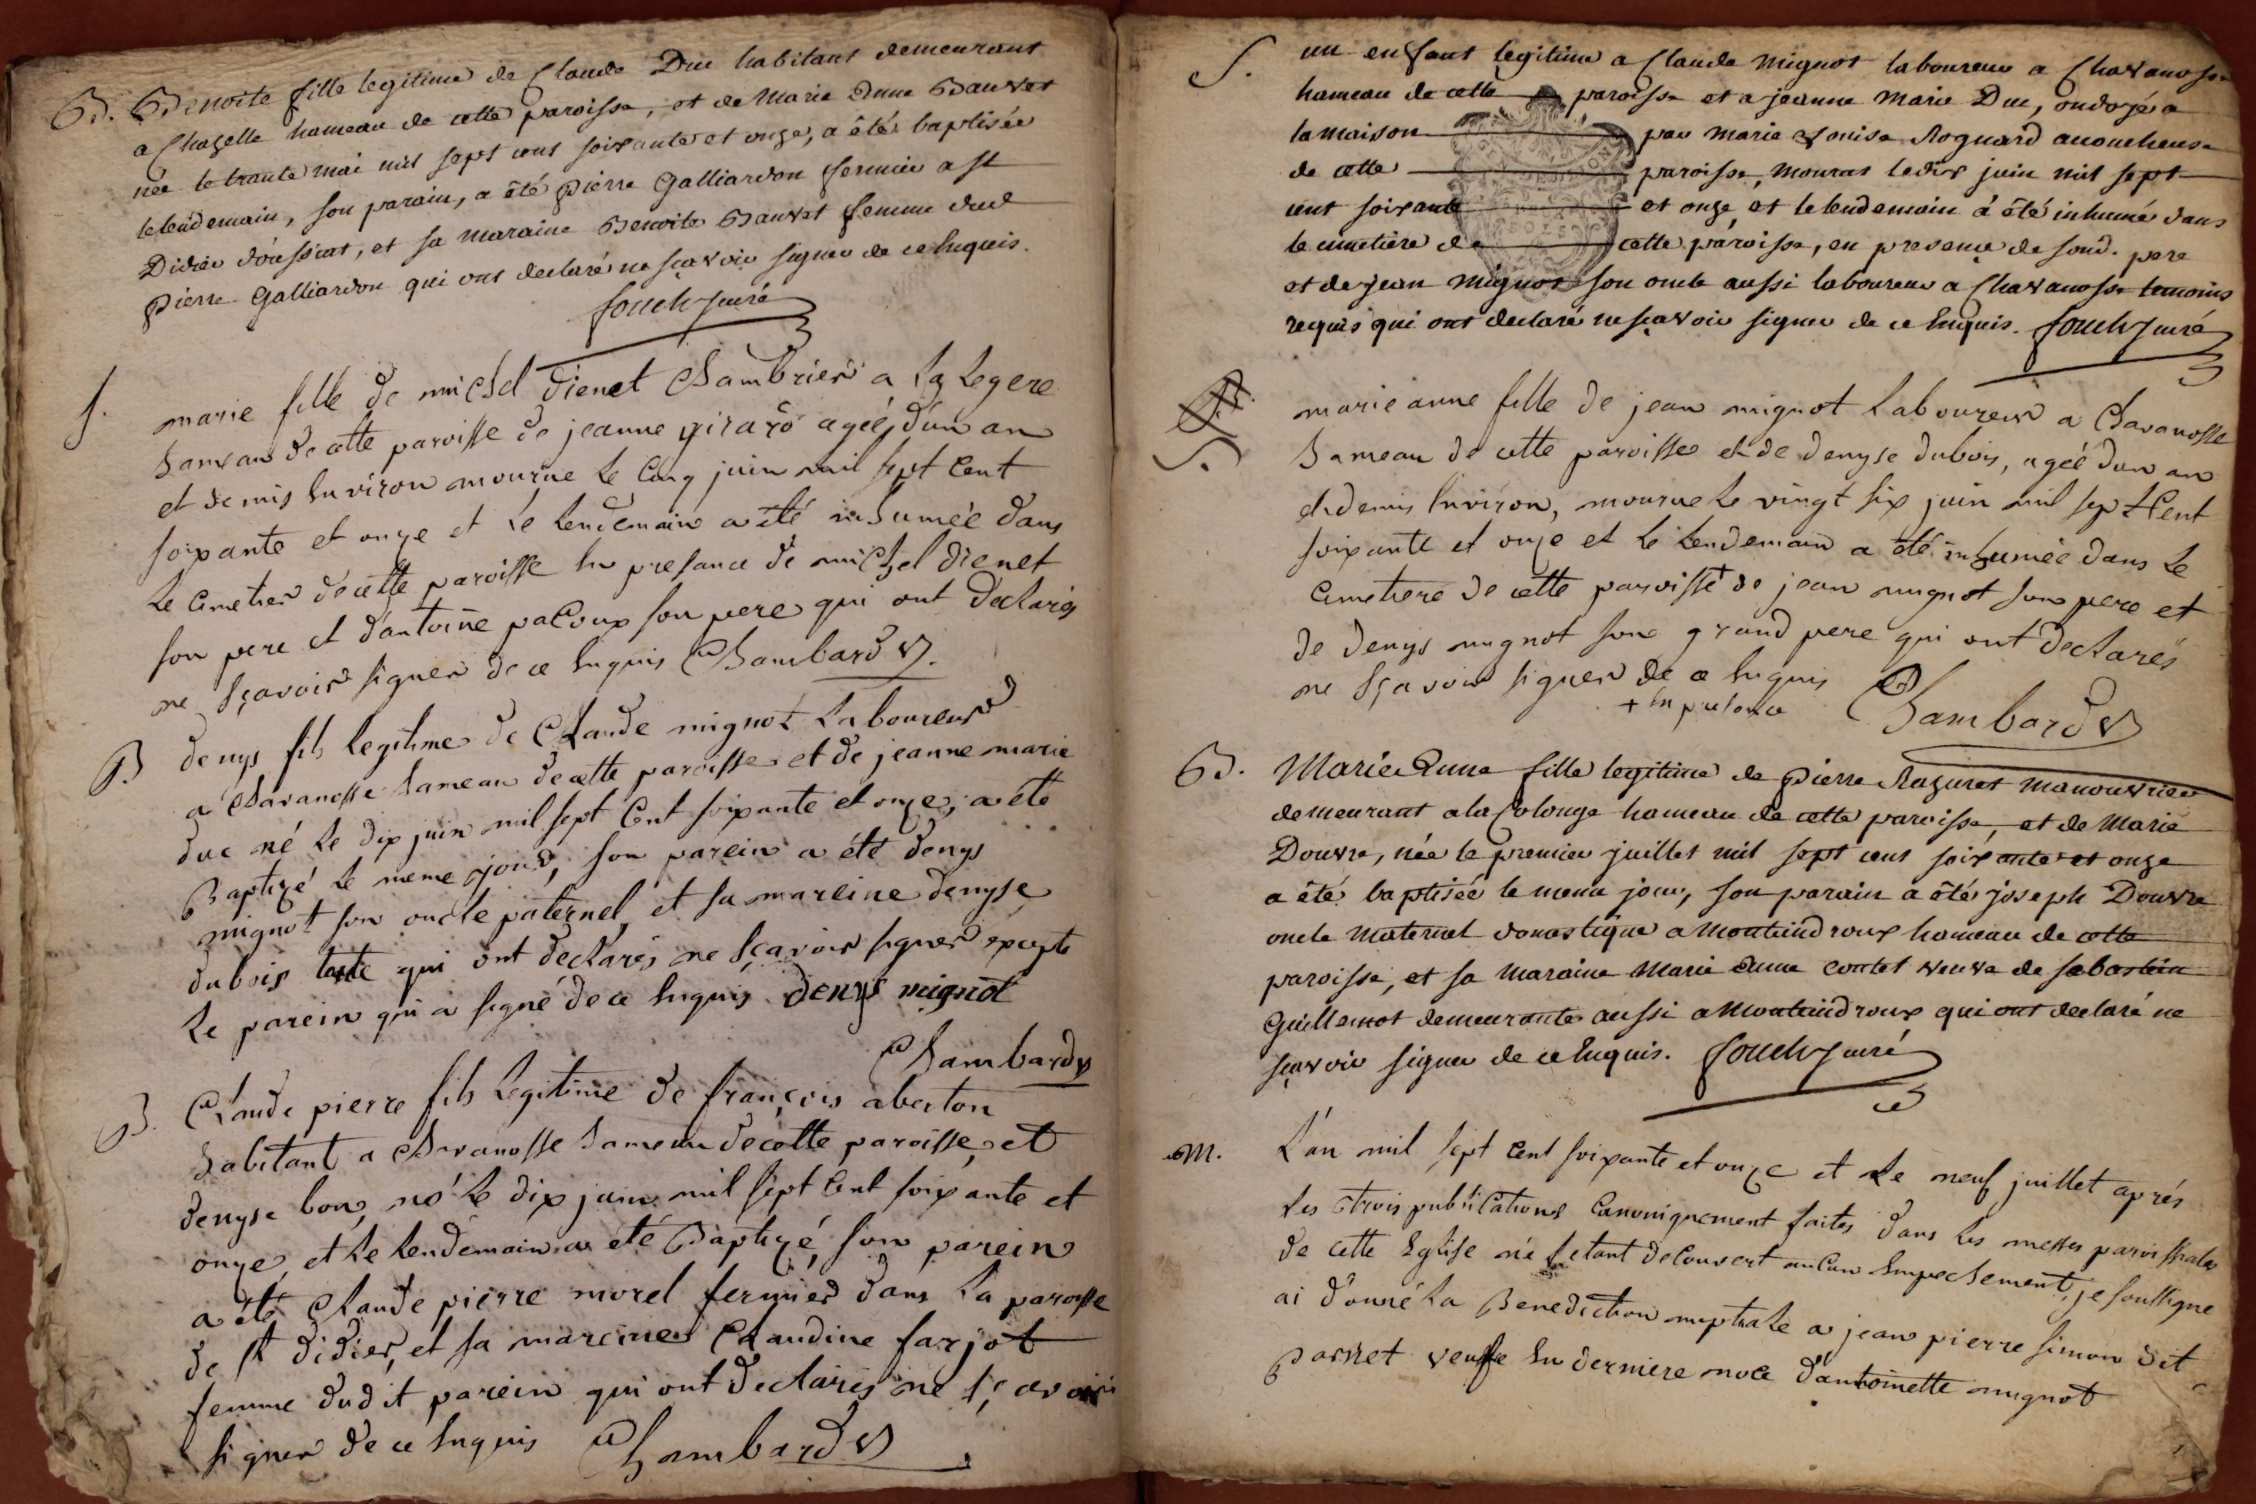 B. Benoite fille legitime de Claude Duc habitant demeurant
a Chazelle hameau de cette paroisse, et de Marie Anne Bauvet
née le trante mai mil sept cens soixante et onze, a été baptisée
le lendemain, son parain, a été pierre Galliardon fermier a st
Didier d'oussiat, et sa maraine Benoite Bauvet femme dud
pierre Galliardon qui ont declaré ne sçavoir signer de ce Enquis.
fouch curé
S. marie fille de michel Dienet Chambrier a La Legere
hameau de cette paroisse de jeanne girard agée d'un an
et demis Environ mourue Le Cinq juin mil sept Cent
soixante et onze et Le Lendemain a été inhumée dans
Le Cimetier de cette paroisse En presance de michel dienet
son pere et d'antoine pacoux son pere qui ont declarés
ne sçavoir signer de ce Enquis Chambard v.
B. denys fils Legitime de Claude mignot Laboureur
a Chavanosse hameau de cette paroisse et de jeanne marie
duc né Le dix juin mil sept Cent soixante et onze, a été
Baptizé Le meme jour, son parein a été denys
mignot son oncle paternel, et sa mareine denyse
dubois qui ont declarés ne sçavoir signer excepté
Le parein qui a signé de ce Enquis denys mignot
Chambard v
B. Claude pierre fils Legitime de françois aberton
habitant a Chavanosse hameau de cette paroisse, et
denyse bon, né Le dix juin mil sept Cent soixante et
onze, et Le Lendemain a été Baptizé, son parein
a été Claude pierre morel fermier dans La paroisse
de st didier, et sa mareine Claudine farjot
femme dudit parein qui ont declarés ne sçavoir
signer de ce Enquis Chambard v
S. un enfant legitime a Claude Mignot laboureur a Chavanosse
hameau de cette paroisse et a jeanne Marie Duc, ondoyé a
la maison par Marie Louise Roguard acoucheuse
de cette paroisse, mourut le dix juin mil sept
cent soixante et onze et le lendemain a été inhumé dans
le cimetière de cette paroisse, en presence de sond. pere
et de jean Mignot son oncle aussi laboureur a Chavanosse temoins
requis qui ont declaré ne sçavoir signer de ce Enquis. fouch curé
S. marie anne fille de jean mignot Laboureur a Chavanosse
hameau de cette paroisse et de denyse dubois, agée dun an
et demis Environ, mourue Le vingt six juin mil sept Cent
soixante et onze et Le Lendemain a été inhumée dans Le
Cimetiere de cette paroisse + de jean mignot son pere et
de denys mignot son grand pere qui ont declarés
ne sçavoir signer de ce Enquis
+ En presence Chambard v
B. Marie Anne fille legitime de pierre Razuret manouvrier
demeurant a la Colonge hameau de cette paroisse, et de Marie
Douvre, née le premier juillet mil sept cens soixante et onze
a été baptisée le meme jour, son parain a été joseph Douvre
oncle maternel domestique a Montaindroux hameau de cette
paroisse, et sa maraine Marie Anne Contet veuve de sebastien
Guillemot demeurante aussi a Montaindroux qui ont declaré ne
sçavoir signer de ce Enquis. fouch curé
M. L'an mil sept Cent soixante et onze et Le neuf juillet aprés
Les trois publications Canoniquement faites dans Les messes paroissiales
de cette Eglise ne s'etant decouvert aucun Empechement, je soussigné
ai donné La Benediction nuptiale a jean pierre simon dit
veuffe En derniere noce d'antoinette mugnot